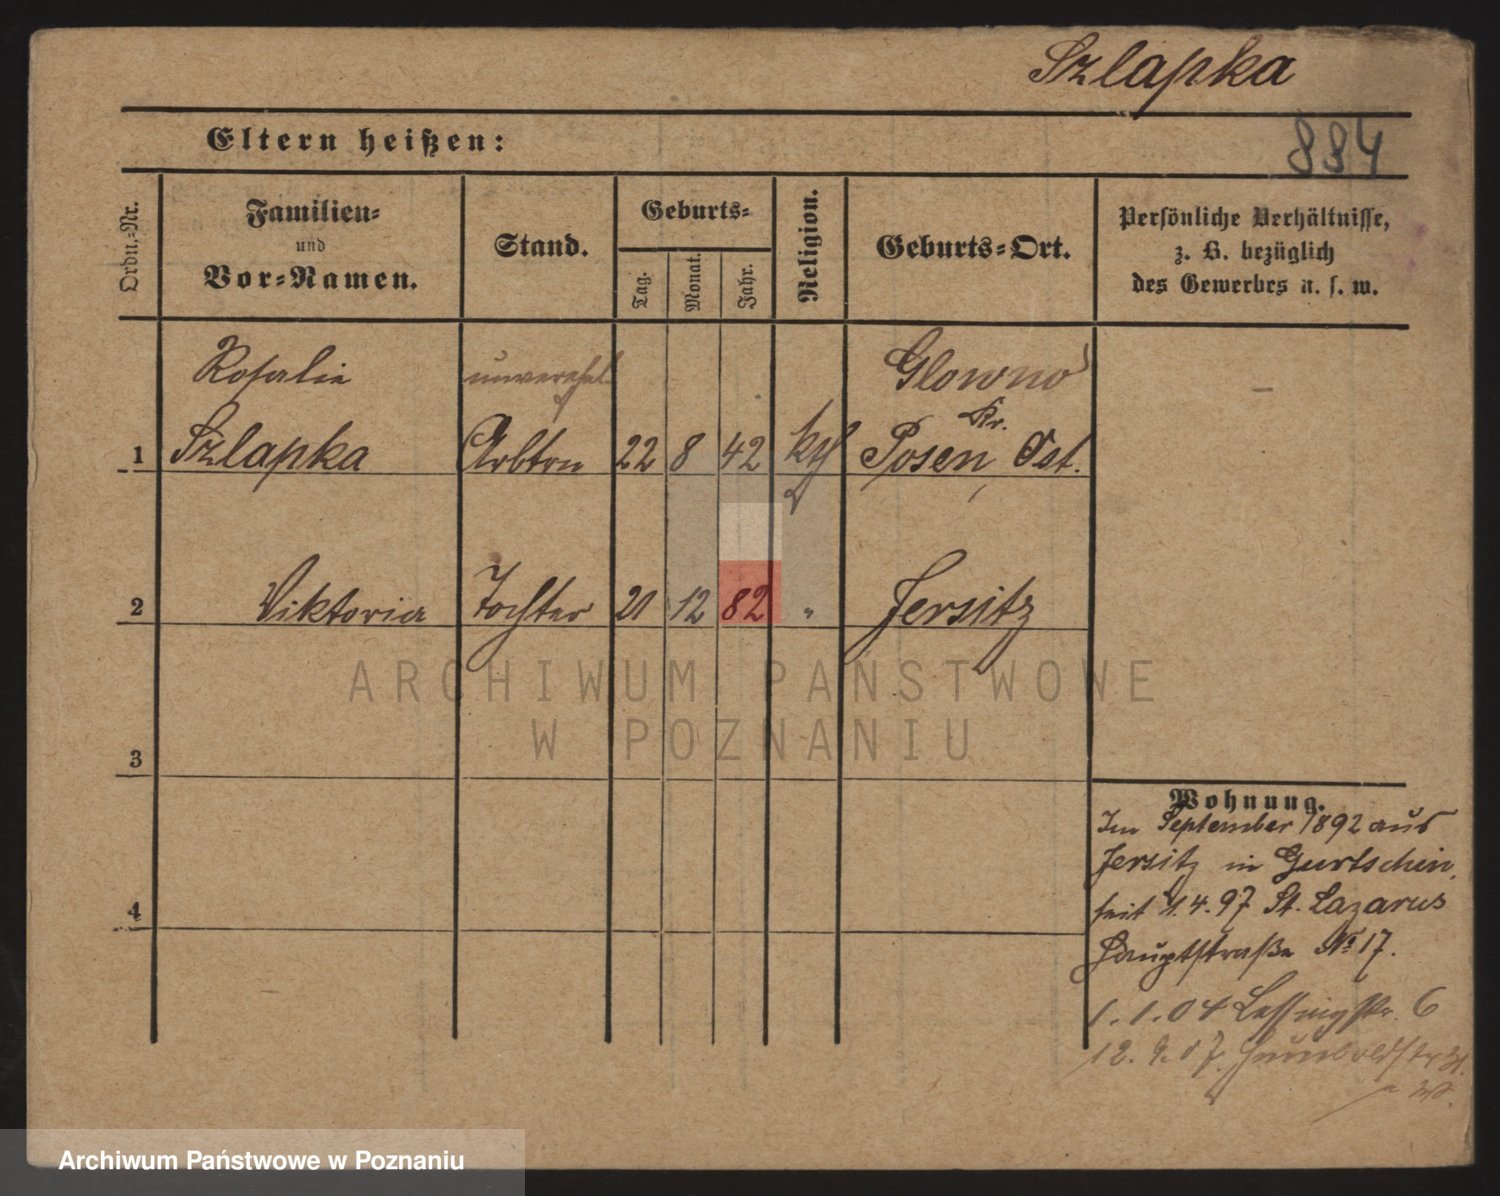 Szlapka
884
Eltern heißen:
Ordn.-Nr.
Familien-
und
Vor-Namen.
Stand.
Geburts-
Tag.
Monat.
Jahr.
Religion.
Geburts-Ort.
Persönliche Verhältnisse,
z. B. bezüglich
des Gewerbes u. s. w.
Rosalie unverehel. Glowno
Kr.
1 Szlapka Arbtrn 22 8 42 kth Posen, Ost.
2 Viktoria Tochter 21 12 82 " Jersitz
ARCHIWUM PAŃSTWOWE
W POZNANIU
3
Wohnung.
Im September 1892 aus
Jersitz in Gurtschin,
seit 1.4.97 St. Lazarus
4
Hauptstraße No 17.
1.1.04 Lessingstr. 6
12. 9. 07. Humboldstr
Archiwum Państwowe w Poznaniu